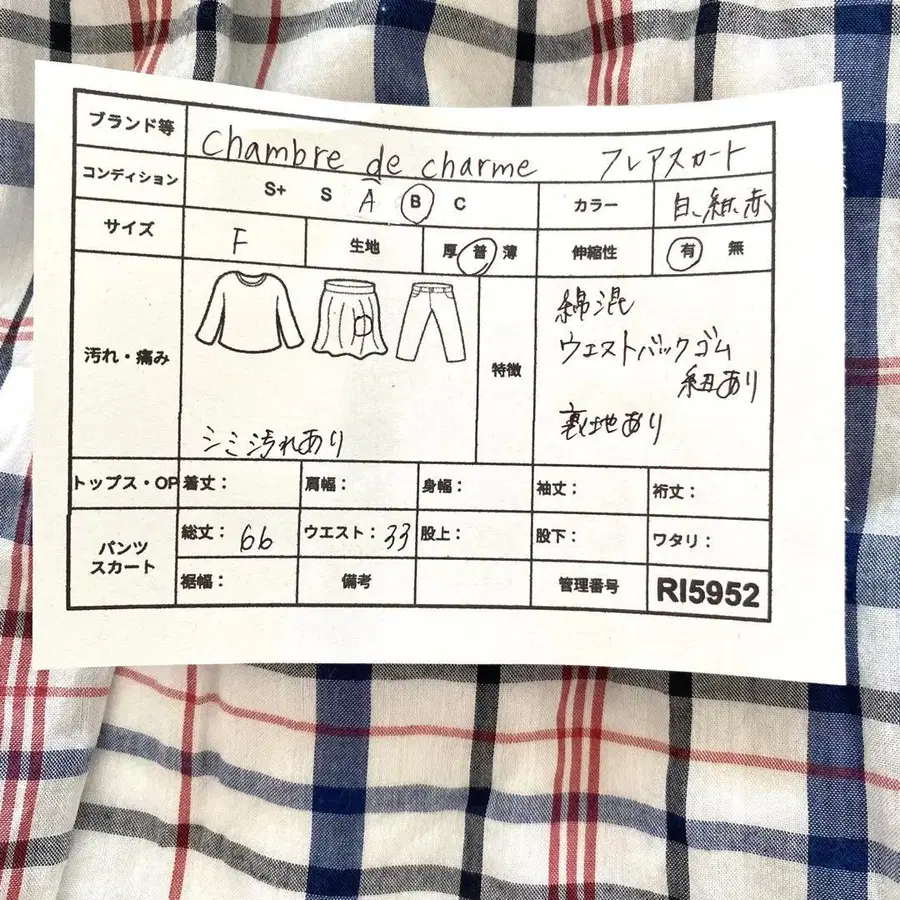 ブランド等 chambre de charme フレアスカート
コンディション S+ S A B C カラー 白、紺、赤
サイズ F 生地 厚 普 薄 伸縮性 有 無
汚れ・痛み シミ汚れあり
特徴 綿混
ウエストバックゴム
紐あり
裏地あり
トップス・OP 着丈： 肩幅： 身幅： 袖丈： 裄丈：
パンツ
スカート
総丈： 66 ウエスト： 33 股上： 股下： ワタリ：
裾幅： 備考 管理番号 RI5952